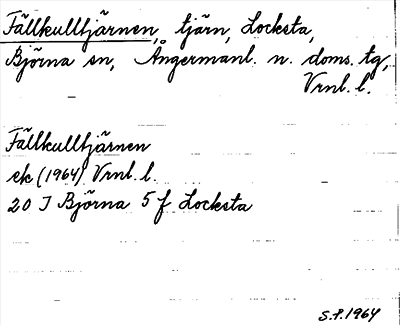 Fällkulltjärnen, tjärn, Locksta,
Björna sn, Ångermanl. n. doms. tg,
Vrnl. l.
Fällkulltjärnen
ek (1964) Vrnl. l.
20 J Björna 5 f Locksta
S.P. 1964